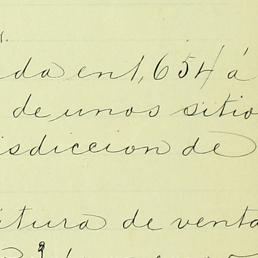 da en 1,654 á
de unos sitio
isdiccion de
itura de venta